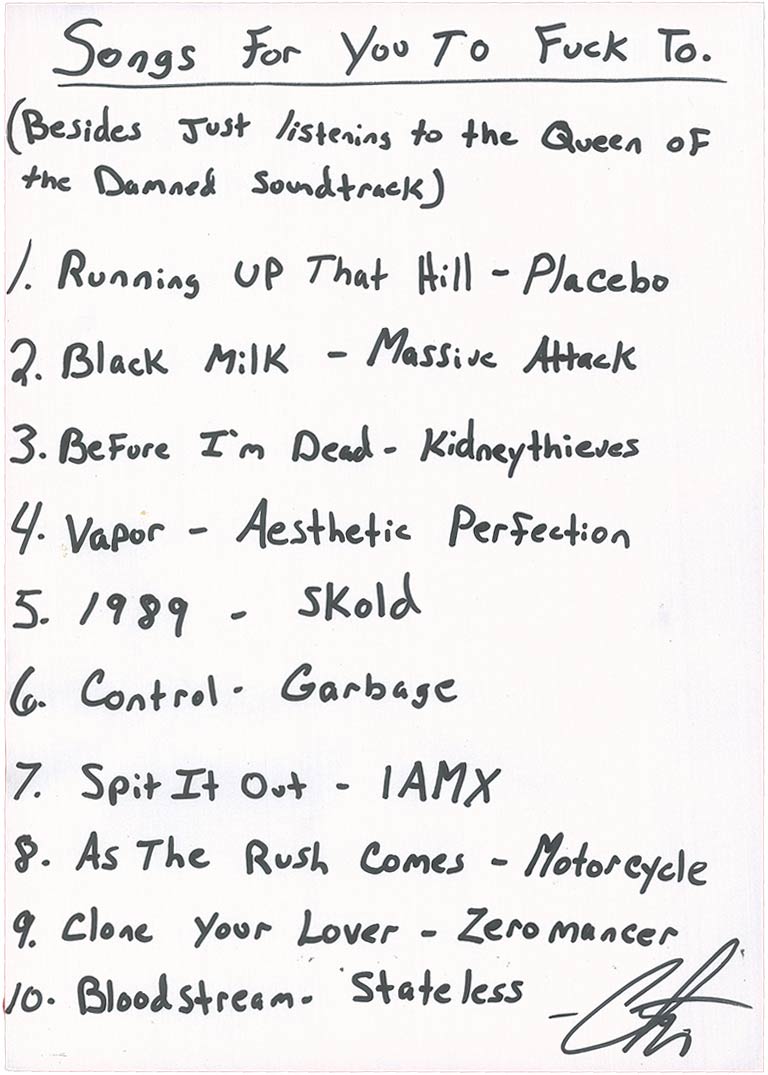 Songs For You To Fuck To.
(Besides Just listening to the Queen of
the Damned Soundtrack)
1. Running UP That Hill - Placebo
2. Black Milk - Massive Attack
3. Before I'm Dead - Kidneythieves
4. Vapor - Aesthetic Perfection
5. 1989 - Skold
6. Control - Garbage
7. Spit It Out - IAMX
8. As The Rush Comes - Motorcycle
9. Clone Your Lover - Zeromancer
10. Bloodstream - Stateless